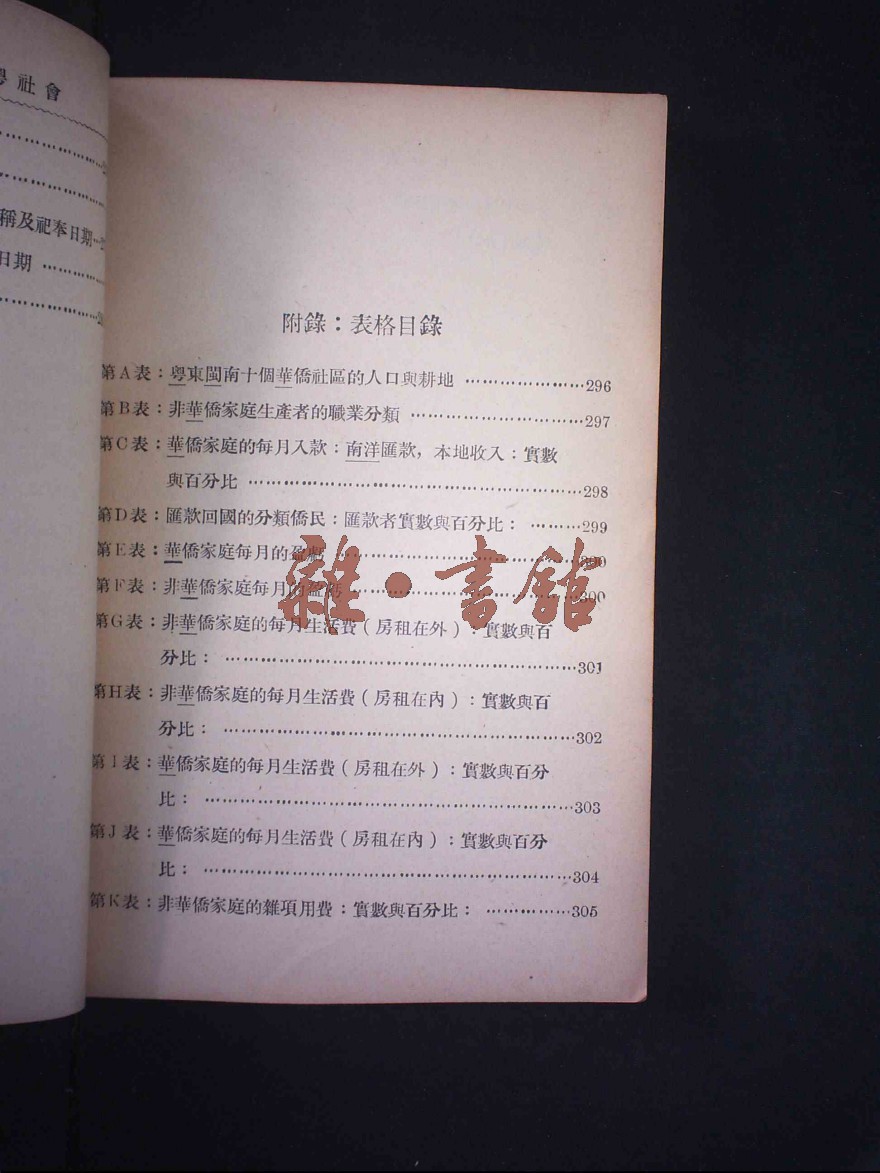 社會
稱及祀奉日期
日期
附錄：表格目錄
第A表：粤東閩南十個華僑社區的人口與耕地 …………………296
第B表：非華僑家庭生產者的職業分類 …………………………297
第C表：華僑家庭的每月入款：南洋匯款，本地收入：實數
與百分比 ……………………………………………………298
第D表：匯款回國的分類僑民：匯款者實數與百分比： ………299
第E表：華僑家庭每月的盈虧 ……………………………………300
第F表：非華僑家庭每月的盈虧 …………………………………300
第G表：非華僑家庭的每月生活費（房租在外）：實數與百
分比： ………………………………………………………301
第H表：非華僑家庭的每月生活費（房租在內）：實數與百
分比： ………………………………………………………302
第I表：華僑家庭的每月生活費（房租在外）：實數與百分
比： …………………………………………………………303
第J表：華僑家庭的每月生活費（房租在內）：實數與百分
比： …………………………………………………………304
第K表：非華僑家庭的雜項用費：實數與百分比： ……………305
雜·書館